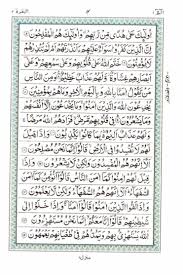 اُولٰٓئِكَ عَلٰى هُدًى مِّنْ رَّبِّهِمْ وَاُولٰٓئِكَ هُمُ الْمُفْلِحُوْنَ
اِنَّ الَّذِيْنَ كَفَرُوْا سَوَآءٌ عَلَيْهِمْ ءَاَنْذَرْتَهُمْ اَمْ لَمْ تُنْذِرْهُمْ
لَا يُؤْمِنُوْنَ خَتَمَ اللّٰهُ عَلٰى قُلُوْبِهِمْ وَعَلٰى سَمْعِهِمْ وَعَلٰٓى
اَبْصَارِهِمْ غِشَاوَةٌ وَّلَهُمْ عَذَابٌ عَظِيْمٌ وَمِنَ النَّاسِ
مَنْ يَّقُوْلُ اٰمَنَّا بِاللّٰهِ وَبِالْيَوْمِ الْاٰخِرِ وَمَا هُمْ بِمُؤْمِنِيْنَ
يُخٰدِعُوْنَ اللّٰهَ وَالَّذِيْنَ اٰمَنُوْا وَمَا يَخْدَعُوْنَ اِلَّآ اَنْفُسَهُمْ
وَمَا يَشْعُرُوْنَ فِيْ قُلُوْبِهِمْ مَّرَضٌ فَزَادَهُمُ اللّٰهُ مَرَضًا
وَلَهُمْ عَذَابٌ اَلِيْمٌ بِمَا كَانُوْا يَكْذِبُوْنَ وَاِذَا قِيْلَ
لَهُمْ لَا تُفْسِدُوْا فِى الْاَرْضِ قَالُوْٓا اِنَّمَا نَحْنُ مُصْلِحُوْنَ
اَلَآ اِنَّهُمْ هُمُ الْمُفْسِدُوْنَ وَلٰكِنْ لَّا يَشْعُرُوْنَ وَاِذَا قِيْلَ
لَهُمْ اٰمِنُوْا كَمَآ اٰمَنَ النَّاسُ قَالُوْٓا اَنُؤْمِنُ كَمَآ اٰمَنَ
السُّفَهَآءُ اَلَآ اِنَّهُمْ هُمُ السُّفَهَآءُ وَلٰكِنْ لَّا يَعْلَمُوْنَ
وَاِذَا لَقُوا الَّذِيْنَ اٰمَنُوْا قَالُوْٓا اٰمَنَّا وَاِذَا خَلَوْا اِلٰى
شَيٰطِيْنِهِمْ قَالُوْٓا اِنَّا مَعَكُمْ اِنَّمَا نَحْنُ مُسْتَهْزِءُوْنَ
اَللّٰهُ يَسْتَهْزِئُ بِهِمْ وَيَمُدُّهُمْ فِيْ طُغْيَانِهِمْ يَعْمَهُوْنَ